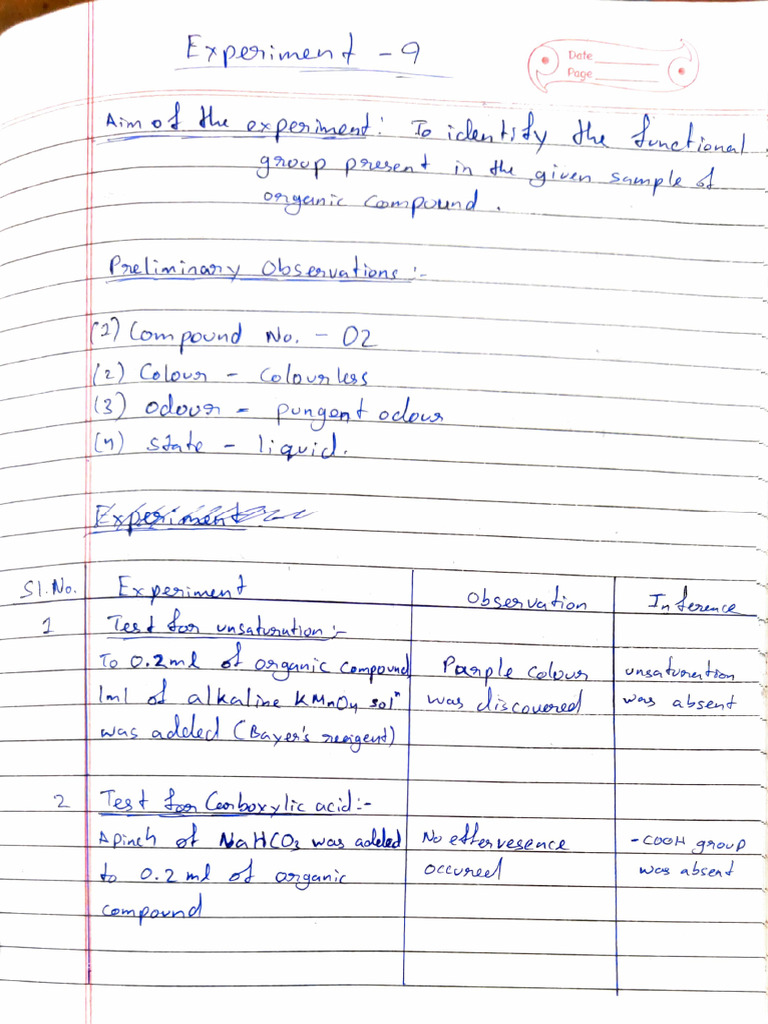 Experiment - 9
Date
Page
Aim of the experiment: To identify the functional
group present in the given sample of
organic compound.
Preliminary Observations :-
(1) Compound No. - 02
(2) Colour - colourless
(3) odour - pungent odour
(4) state - liquid.
Experiment
Sl. No. Experiment Observation Inference
1 Test for unsaturation :-
To 0.2 ml of organic compound Purple colour unsaturation
1ml of alkaline KMnO4 solⁿ was discovered was absent
was added (Bayer's reagent)
2 Test for Carboxylic acid:-
A pinch of NaHCO3 was added No effervesence -COOH group
to 0.2 ml of organic occured was absent
compound